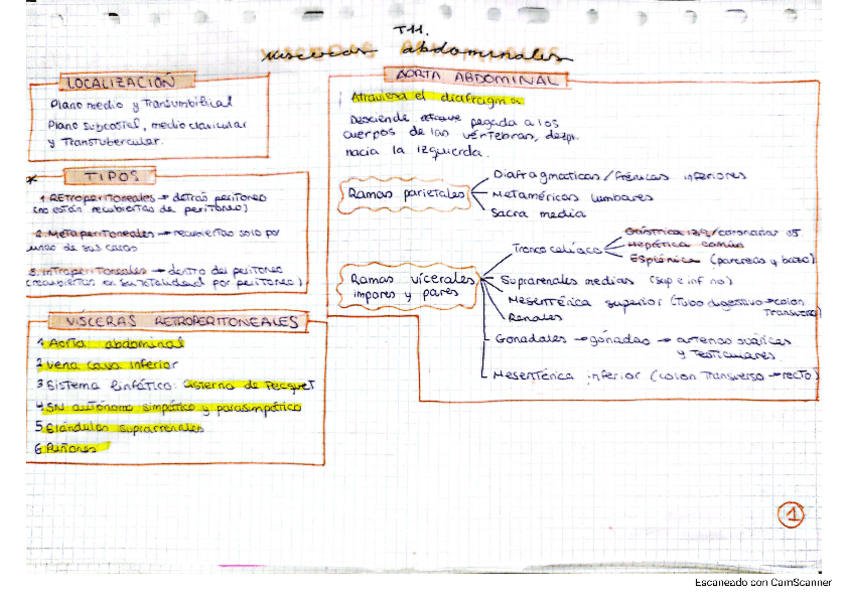 T11.
vísceras abdominales
LOCALIZACIÓN
Plano medio y Transumbilical
Plano subcostal, medio clavicular
y Transtubercular.
* TIPOS
1. RETroperitoneales → detrás peritoneo
(no están recubiertas de peritoneo)
2. Metaperitoneales → recubiertas solo por
una de sus caras
3. Intraperitoneales → dentro del peritoneo
(recubiertas en su totalidad por peritoneo)
VÍSCERAS RETROPERITONEALES
1 Aorta abdominal
2 Vena cava inferior
3 Sistema linfático: cisterna de Pecquet
4 SN autónomo simpático y parasimpático
5 Glándulas suprarrenales
6 Riñones
AORTA ABDOMINAL
Atraviesa el diafragma
Desciende pegada a los
cuerpos de las vértebras, despl.
hacia la izquierda.
Ramas parietales
Diafragmaticas / Frénicas inferiores
Metaméricas lumbares
Sacra media
Ramas vícerales
impares y pares
Tronco celíaco
Gástrica izq/coronaria
Hepática común
Esplénica (pancreas y bazo)
Suprarenales medias (sup e inf no)
Mesentérica superior (Tubo digestivo → colon
Transverso)
Renales
Gonadales → gónadas → arterias ováricas
y Testiculares
Mesentérica inferior (colon Transverso → recto)
1
Escaneado con CamScanner